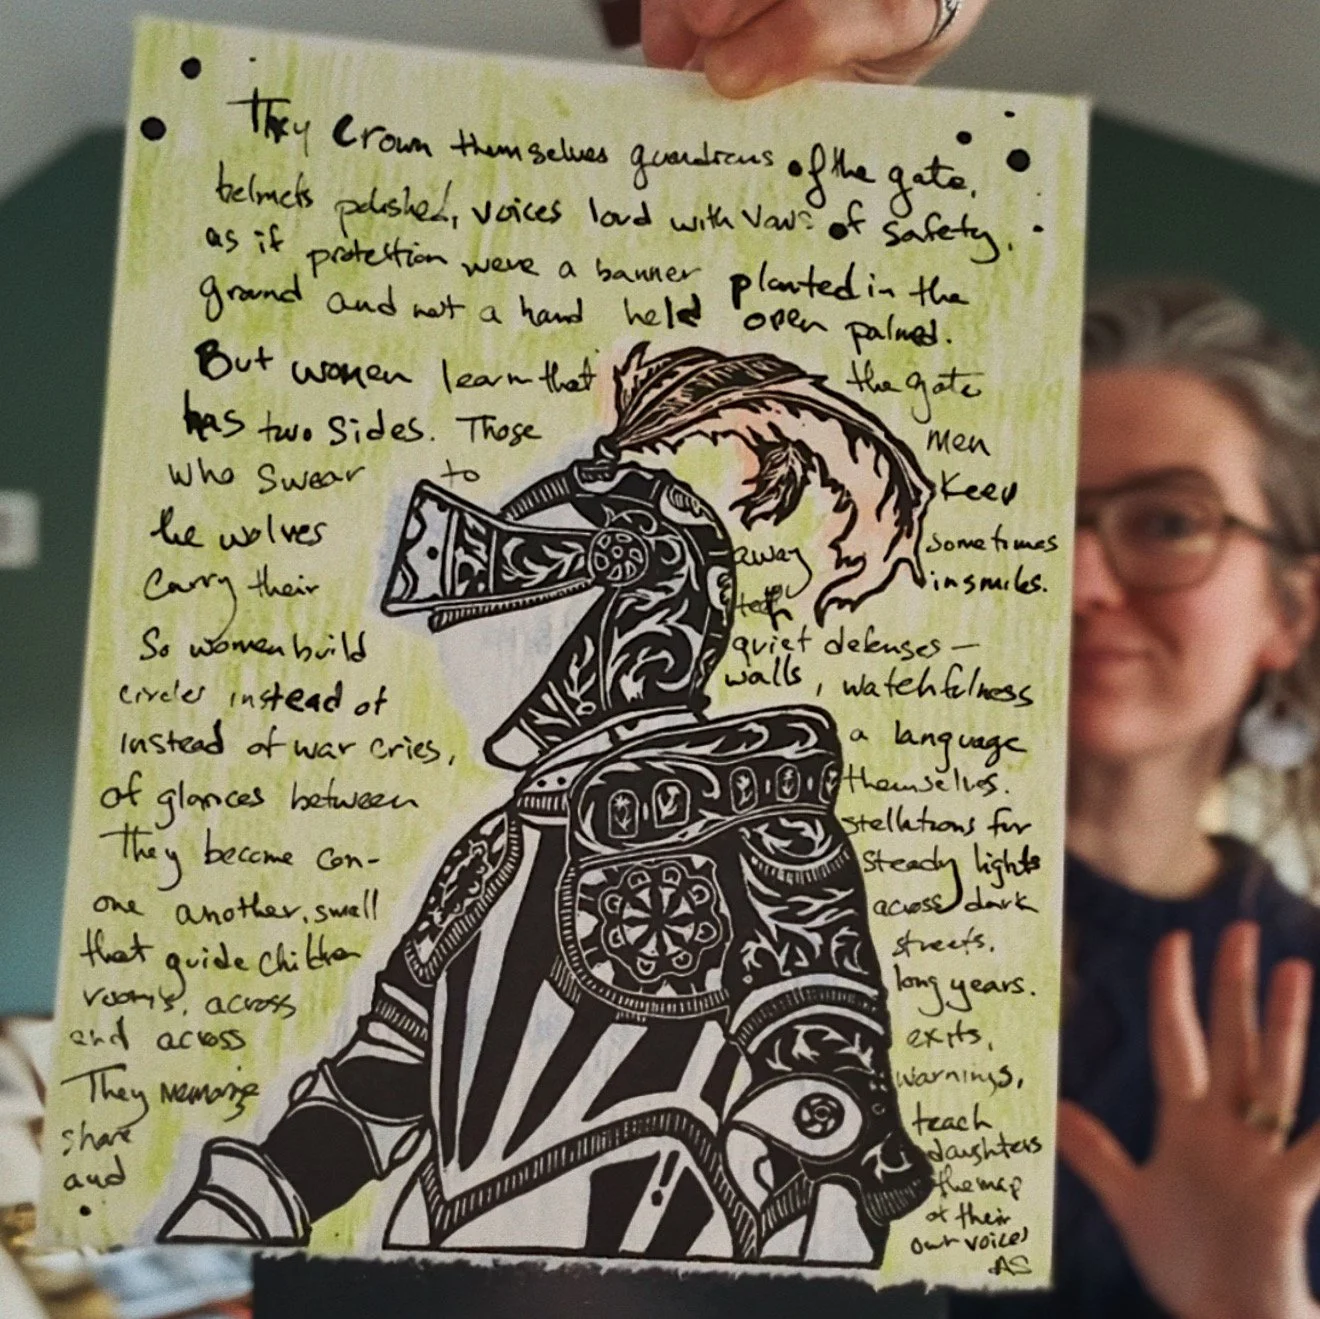 They crown themselves guardians of the gate,
helmets polished, voices loud with vows of safety,
as if protection were a banner planted in the
ground and not a hand held open palmed.
But women learn that the gate
has two sides. Those men
who swear to keep
the wolves away sometimes
carry their teeth in smiles.
So women build quiet defenses —
circles instead of walls, watchfulness
instead of war cries, a language
of glances between themselves.
They become con- stellations for
one another, small steady lights
that guide children across dark
rooms, across streets,
and across long years.
They memorize exits,
share warnings,
and teach
daughters
the map
of their
own voices
AS